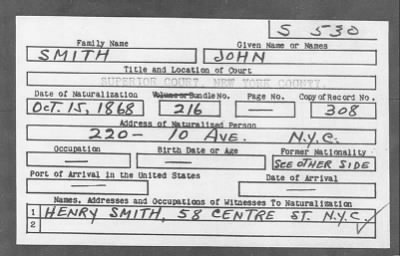 S 530
Family Name Given Name or Names
SMITH JOHN
Title and Location of Court
SUPERIOR COURT, NEW YORK COUNTY
Date of Naturalization Volume or Bundle No. Page No. Copy of Record No.
OCT. 15, 1868 216 — 308
Address of Naturalized Person
220- 10 AVE. N.Y.C.
Occupation Birth Date or Age Former Nationality
— — SEE OTHER SIDE
Port of Arrival in the United States Date of Arrival
— —
Names, Addresses and Occupations of Witnesses To Naturalization
1 HENRY SMITH, 58 CENTRE ST. N.Y.C.
2